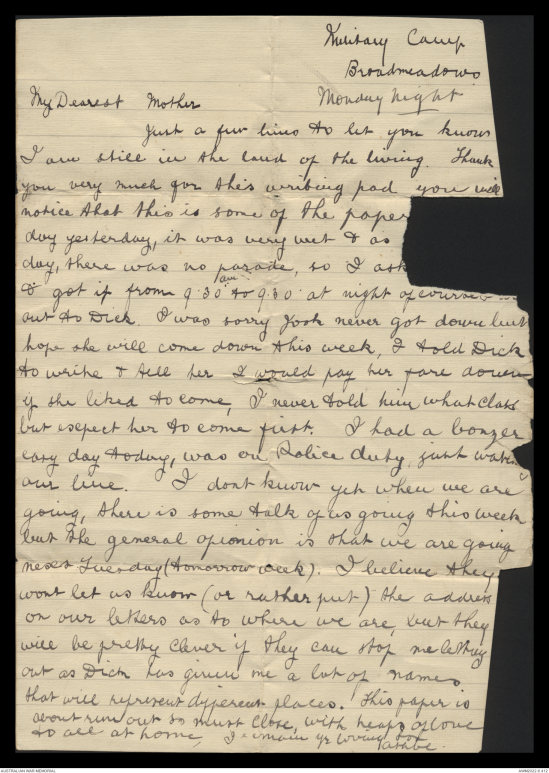 Military Camp
Broadmeadows
Monday night
My Dearest Mother
Just a few lines to let you know
I am still in the land of the living. Thank
you very much for this writing pad you will
notice that this is some of the paper
day yesterday, it was very wet & as
day, there was no parade, so I ask
& got it from 9.30 am to 9.30 at night of course
out to Dick. I was sorry Jook never got down but
hope she will come down this week, I told Dick
to write & tell her I would pay her fare down
if she liked to come, I never told him what class
but expect her to come first. I had a bonzer
easy day today, was on Police duty, just
our line. I dont know yet when we are
going, there is some talk of us going this week
but the general opionion is that we are going
next Tuesday (tomorrow week). I believe they
wont let us know (or rather put) the address
on our letters as to where we are, but they
will be pretty clever if they can stop me letting
out as Dick has given me a lot of names
that will represent different places. This paper is
about run out so must close, with heaps of love
to all at home, I remain yr loving son
AUSTRALIAN WAR MEMORIAL